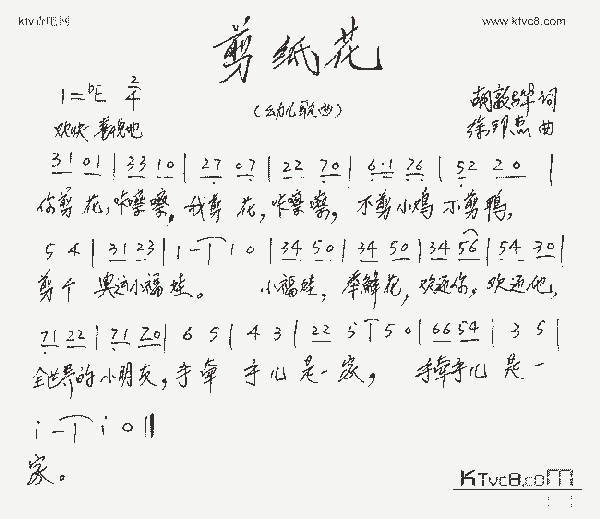 www.ktvc8.com
剪纸花
1=bE 2/4
(幼儿歌曲)
胡敦骅 词
欢快 亲切地
徐邦杰 曲
31 01 | 33 10 | 27 07 | 22 70 | 6·1 76 | 52 20 |
你剪花,咔嚓嚓,我剪花,咔嚓嚓,不剪小鸡不剪鸭,
5 4 | 31 23 | 1 - | 1 0 | 34 50 | 34 50 | 34 56 | 54 30 |
剪个 奥运小福娃。 小福娃,举鲜花,欢迎你,欢迎他,
71 22 | 71 20 | 6 5 | 4 3 | 22 5 | 5 0 | 66 54 | 3 5 |
全世界的小朋友,手牵手儿是一家, 手牵手儿是一
i - | i 0 ||
家。
KTvc8.com